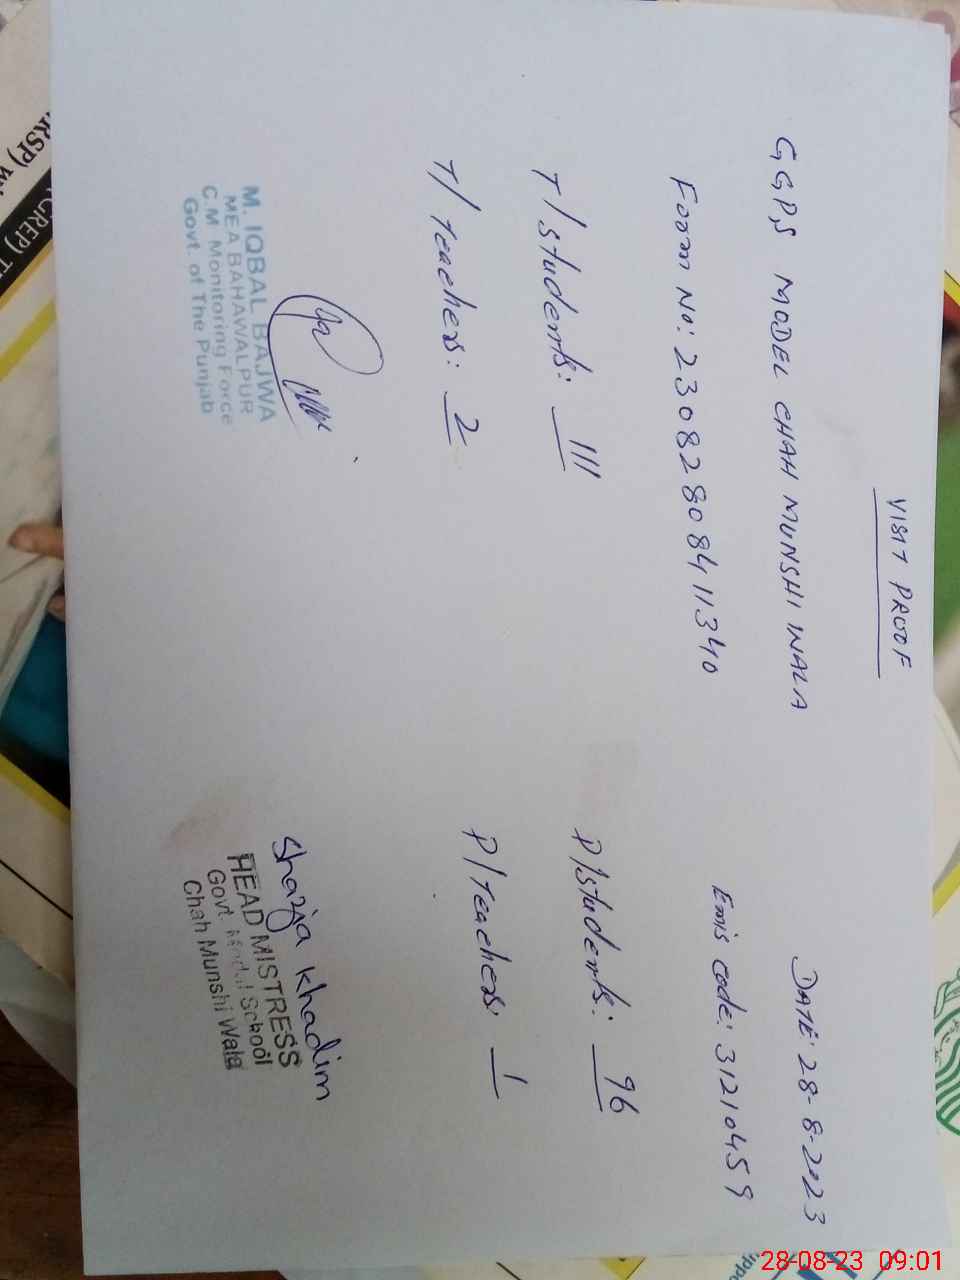 VISIT PROOF
GGPS MODEL CHAH MUNSHI WALA DATE: 28-8-2023
Form No: 23082808411340 Emis code: 31210459
T/students: 111 P/students: 96
T/Teachers: 2 P/Teachers: 1
M. IQBAL BAJWA
MEA BAHAWALPUR
C.M Monitoring Force
Govt. of The Punjab
Shazja Khadim
HEAD MISTRESS
Govt. Model School
Chah Munshi Wala
RSP) wi
GREP) T
ddr
28-08-23 09:01